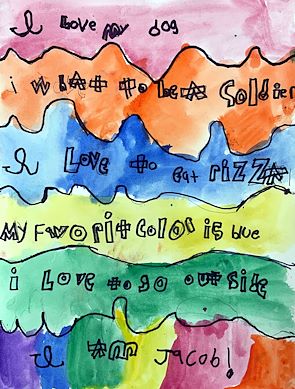 I Love my dog
i want to be a Soldier
I Love to Eat rizza
My Favorit color is blue
i Love to go outsile
I am Jacob!